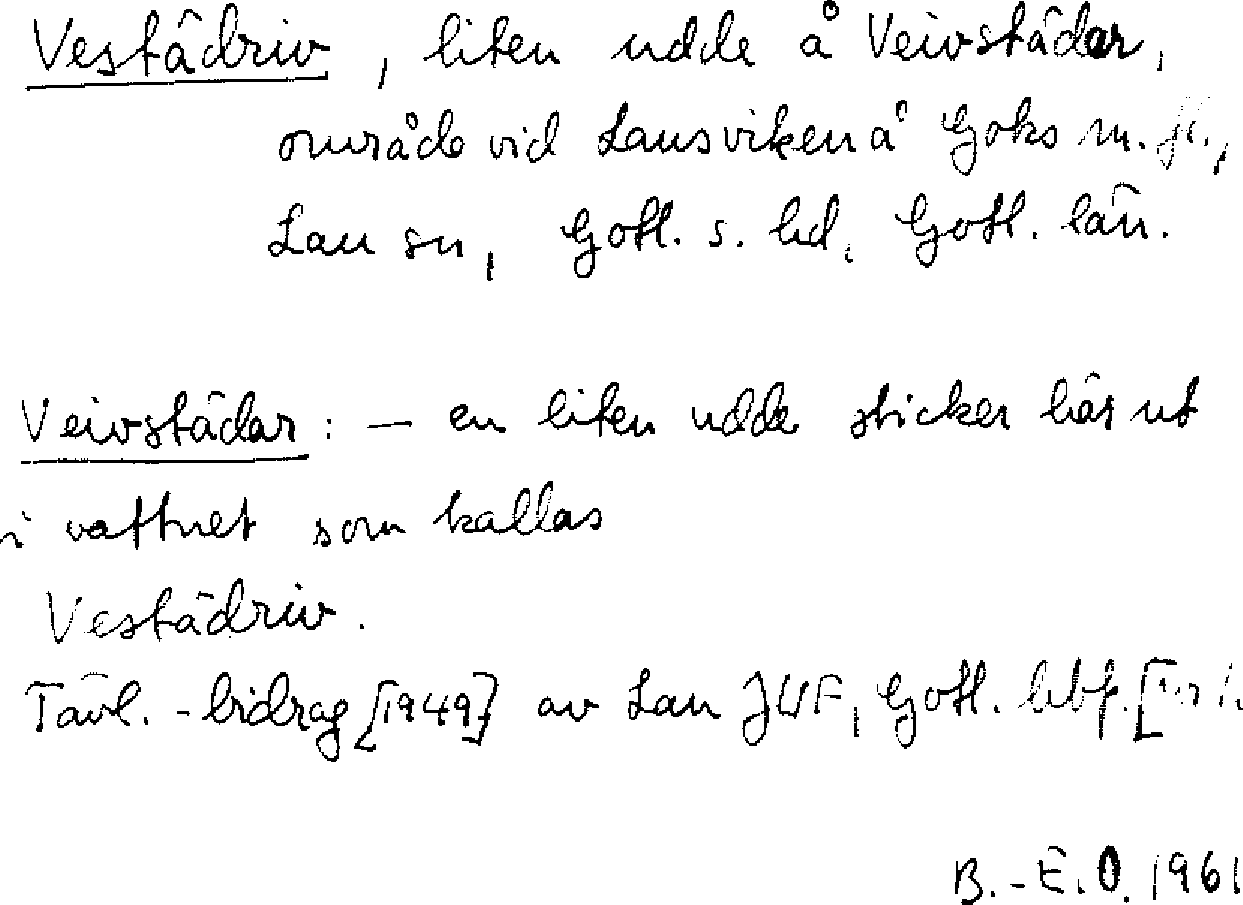 Vestädriv, liten udde å Veivstädar,
område vid Lausviken å Goks m. fl.,
Lau sn, Gotl. s. hd. Gotl. län.
Veivstädar : — en liten udde sticker här ut
i vattnet som kallas
Vestädriv.
Tävl.-bidrag [1949] av Lau JUF, Gotl. lbf.
B.-E.O. 1961